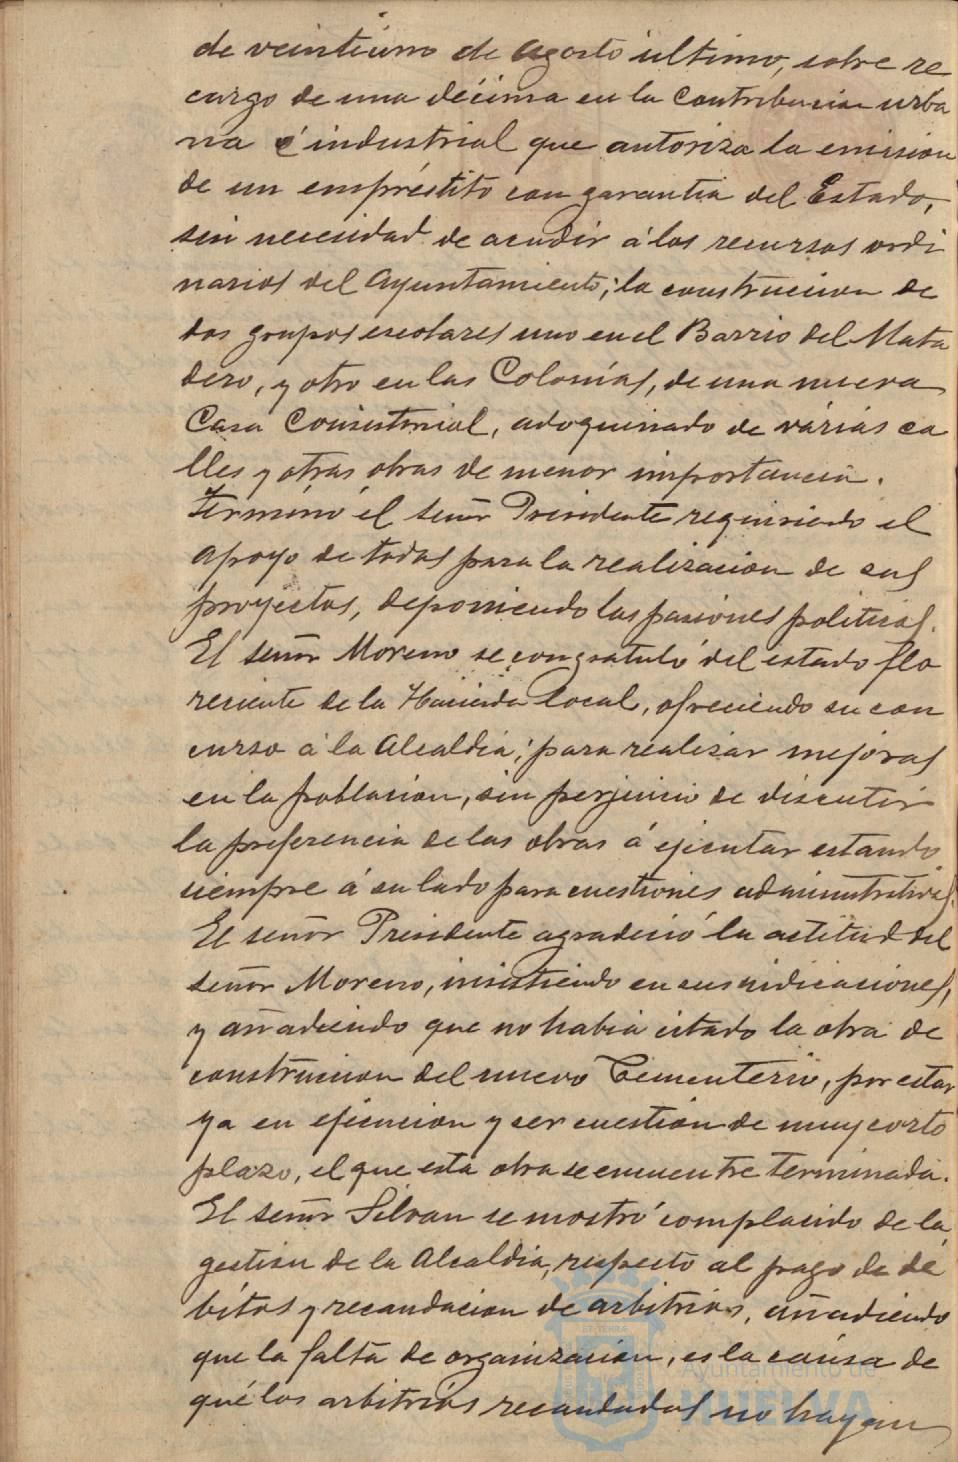 de veintiuno de Agosto último, sobre re
cargo de una décima en la Contribucion urba
na é industrial que autoriza la emision
de un empréstito con garantia del Estado,
sin necesidad de acudir á los recursos ordi
narios del Ayuntamiento; la construccion de
dos grupos escolares uno en el Barrio del Mata
dero, y otro en las Colonias, de una nueva
Casa Consistorial, adoquinado de várias ca
lles y otras obras de menor importancia.
Términó el señor Presidente requiriendo el
apoyo de todos para la realizacion de sus
proyectos, deponiendo las pasiones politicas.
El señor Moreno se congratuló del estado flo
reciente de la Hacienda local, ofreciendo su con
curso á la Alcaldia, para realizar mejoras
en la poblacion, sin perjuicio de discutir
la preferencia de las obras á ejecutar estando
siempre á su lado para cuestiones administrativas.
El señor Presidente agradeció la actitud del
señor Moreno, insistiendo en sus indicaciones,
y añadiendo que no habia citado la obra de
construccion del nuevo Cementerio, por estar
ya en ejecucion y ser cuestion de muy corto
plazo, el que esta obra se encuentre terminada.
El señor Silvan se mostró complacido de la
gestion de la Alcaldia, respecto al pago de dé
bitos y recaudacion de arbitrios, añadiendo
que la falta de organizacion, es la causa de
qué los arbitrios recaudados no hayan
Ayuntamiento de
HUELVA